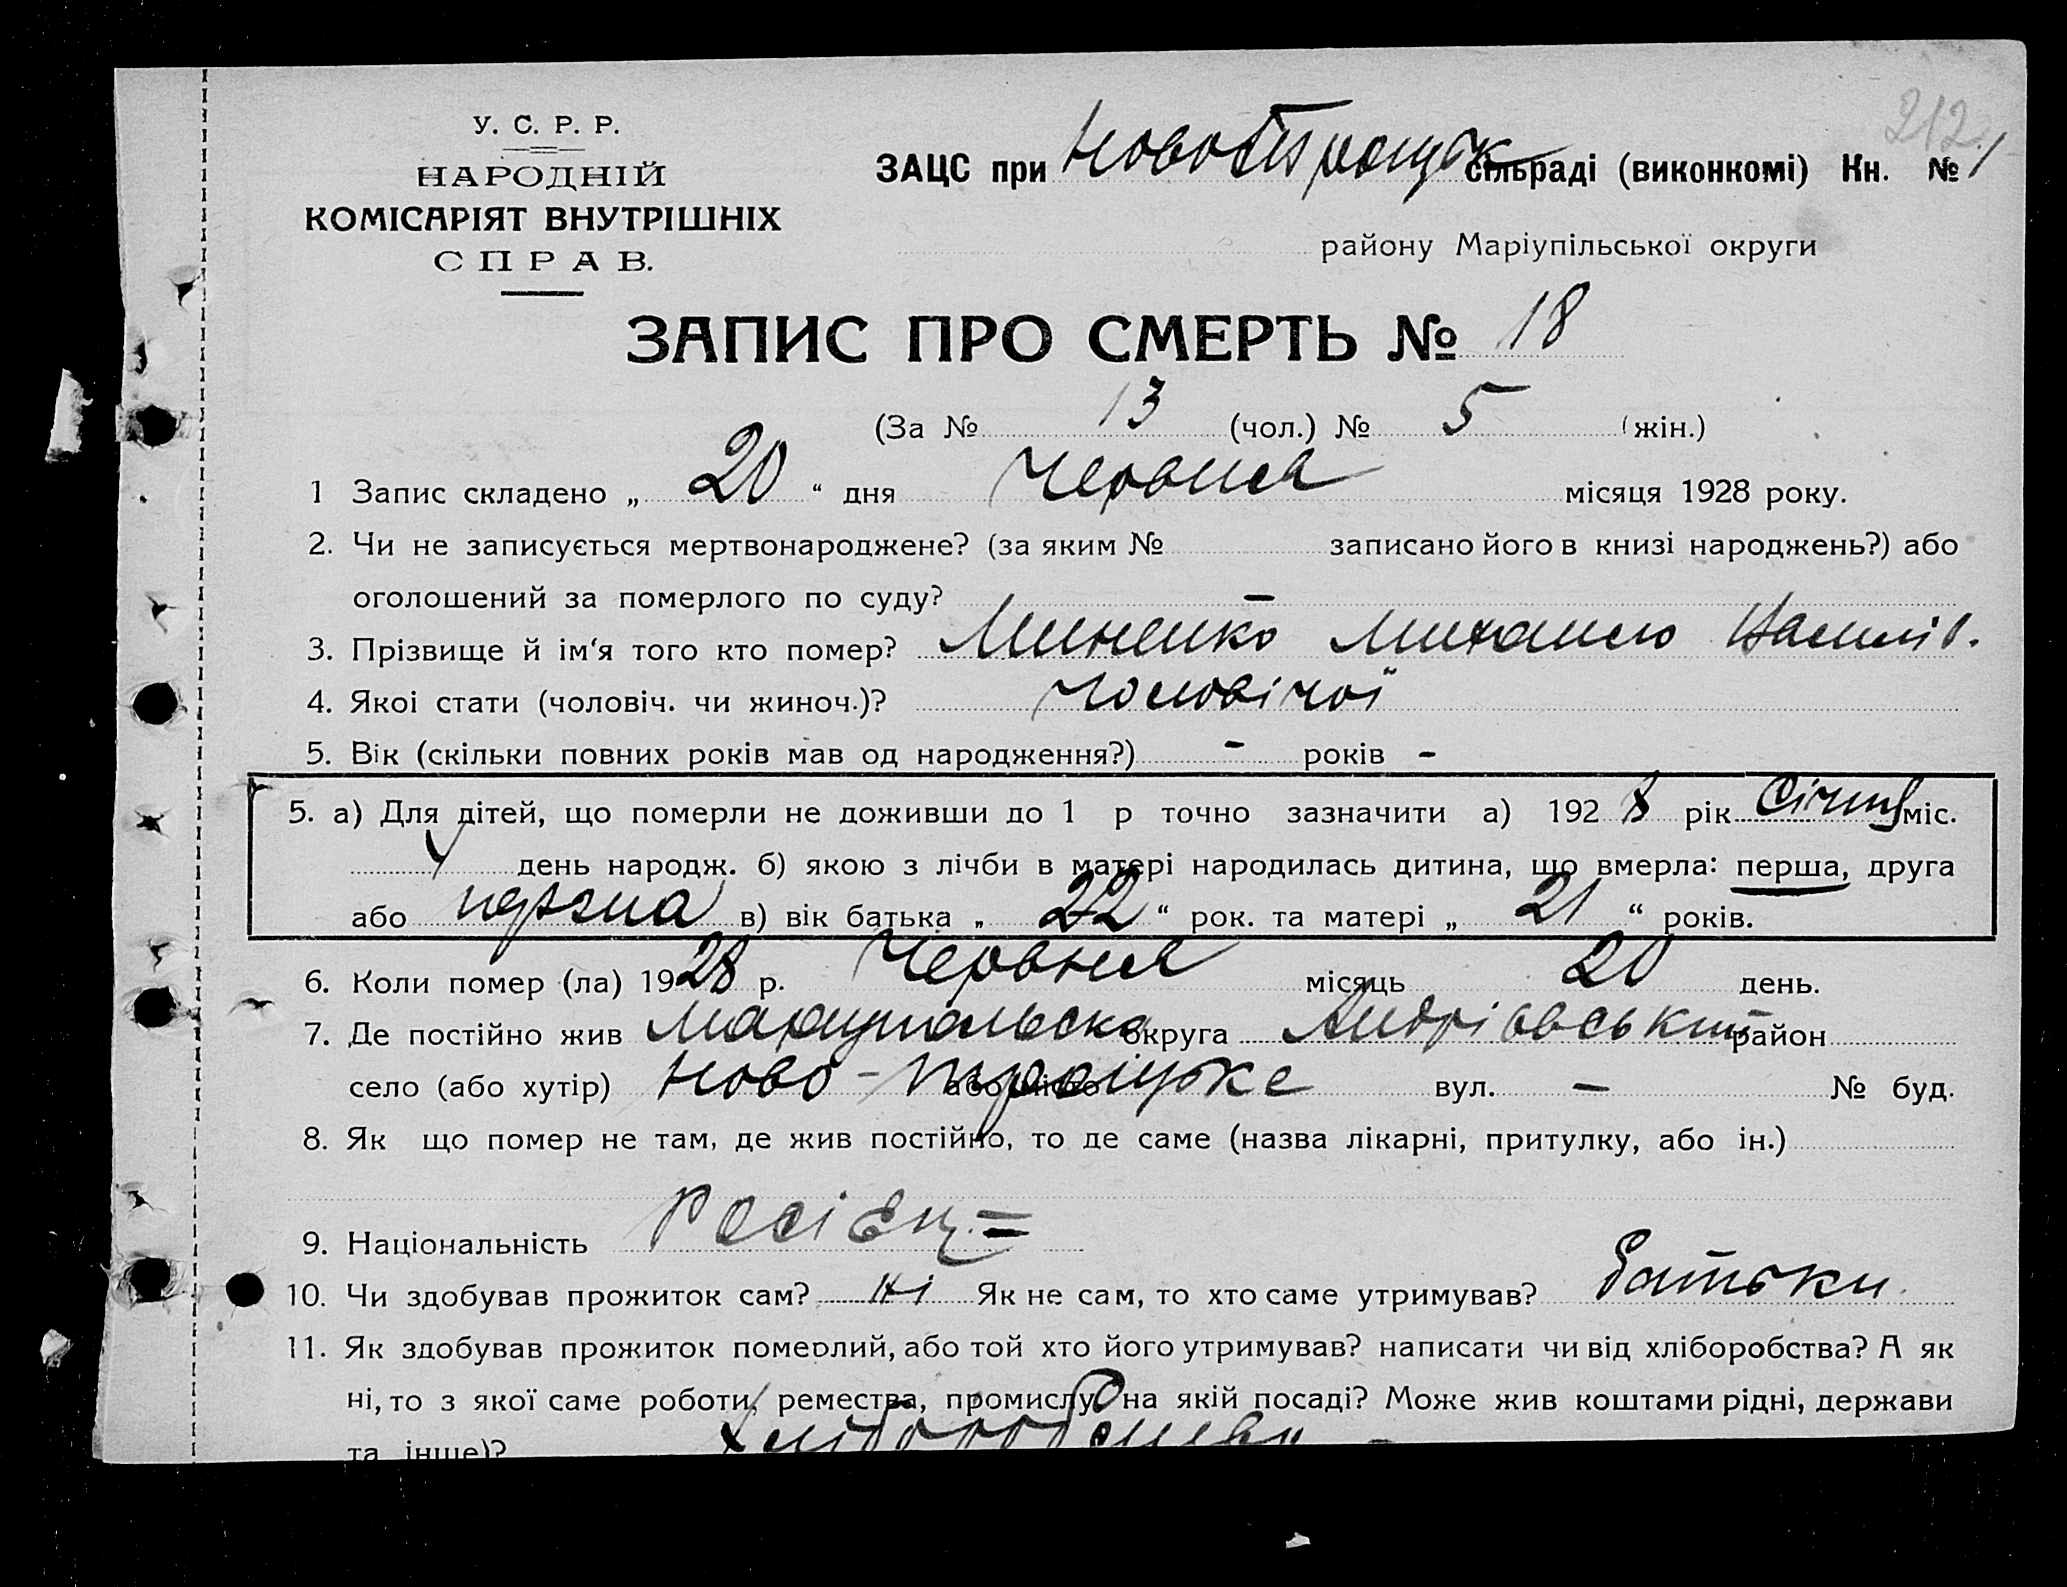 212.
У. С. Р. Р.
НАРОДНІЙ
КОМІСАРІЯТ ВНУТРІШНІХ
СПРАВ.
ЗАЦС при сільраді (виконкомі) Кн. № 1
району Маріупільської округи
ЗАПИС ПРО СМЕРТЬ № 18
(За № 13 (чол.) № 5 (жін.)
1 Запис складено „ 20 “ дня Червня місяця 1928 року.
2. Чи не записується мертвонароджене? (за яким № записано його в книзі народжень?) або
оголошений за померлого по суду? –
3. Прізвище й ім‘я того кто помер? Миненко Михайло Василів.
4. Якоі стати (чоловіч. чи жиноч.)? Чоловічої
5. Вік (скільки повних років мав од народження?) - років -
5. а) Для дітей, що померли не доживши до 1 р точно зазначити а) 1928 рік Січня міс.
день народж. б) якою з лічби в матері народилась дитина, що вмерла: перша, друга
або перша в) вік батька „ 22 “ рок. та матері „ 21 “ років.
6. Коли помер (ла) 1928 р. Червня місяць 20 день.
7. Де постійно жив округа Андрієвський район
село (або хутір) Ново- або місто вул. – № буд.
8. Як що помер не там, де жив постійно, то де саме (назва лікарні, притулку, або ін.)
9. Національність Росієц. =
10. Чи здобував прожиток сам? Ні Як не сам, то хто саме утримував? батьки.
11. Як здобував прожиток померлий, або той хто його утримував? написати чи від хліборобства? А як
ні, то з якої саме роботи, ремества, промислу на якій посаді? Може жив коштами рідні, держави
та інше)?